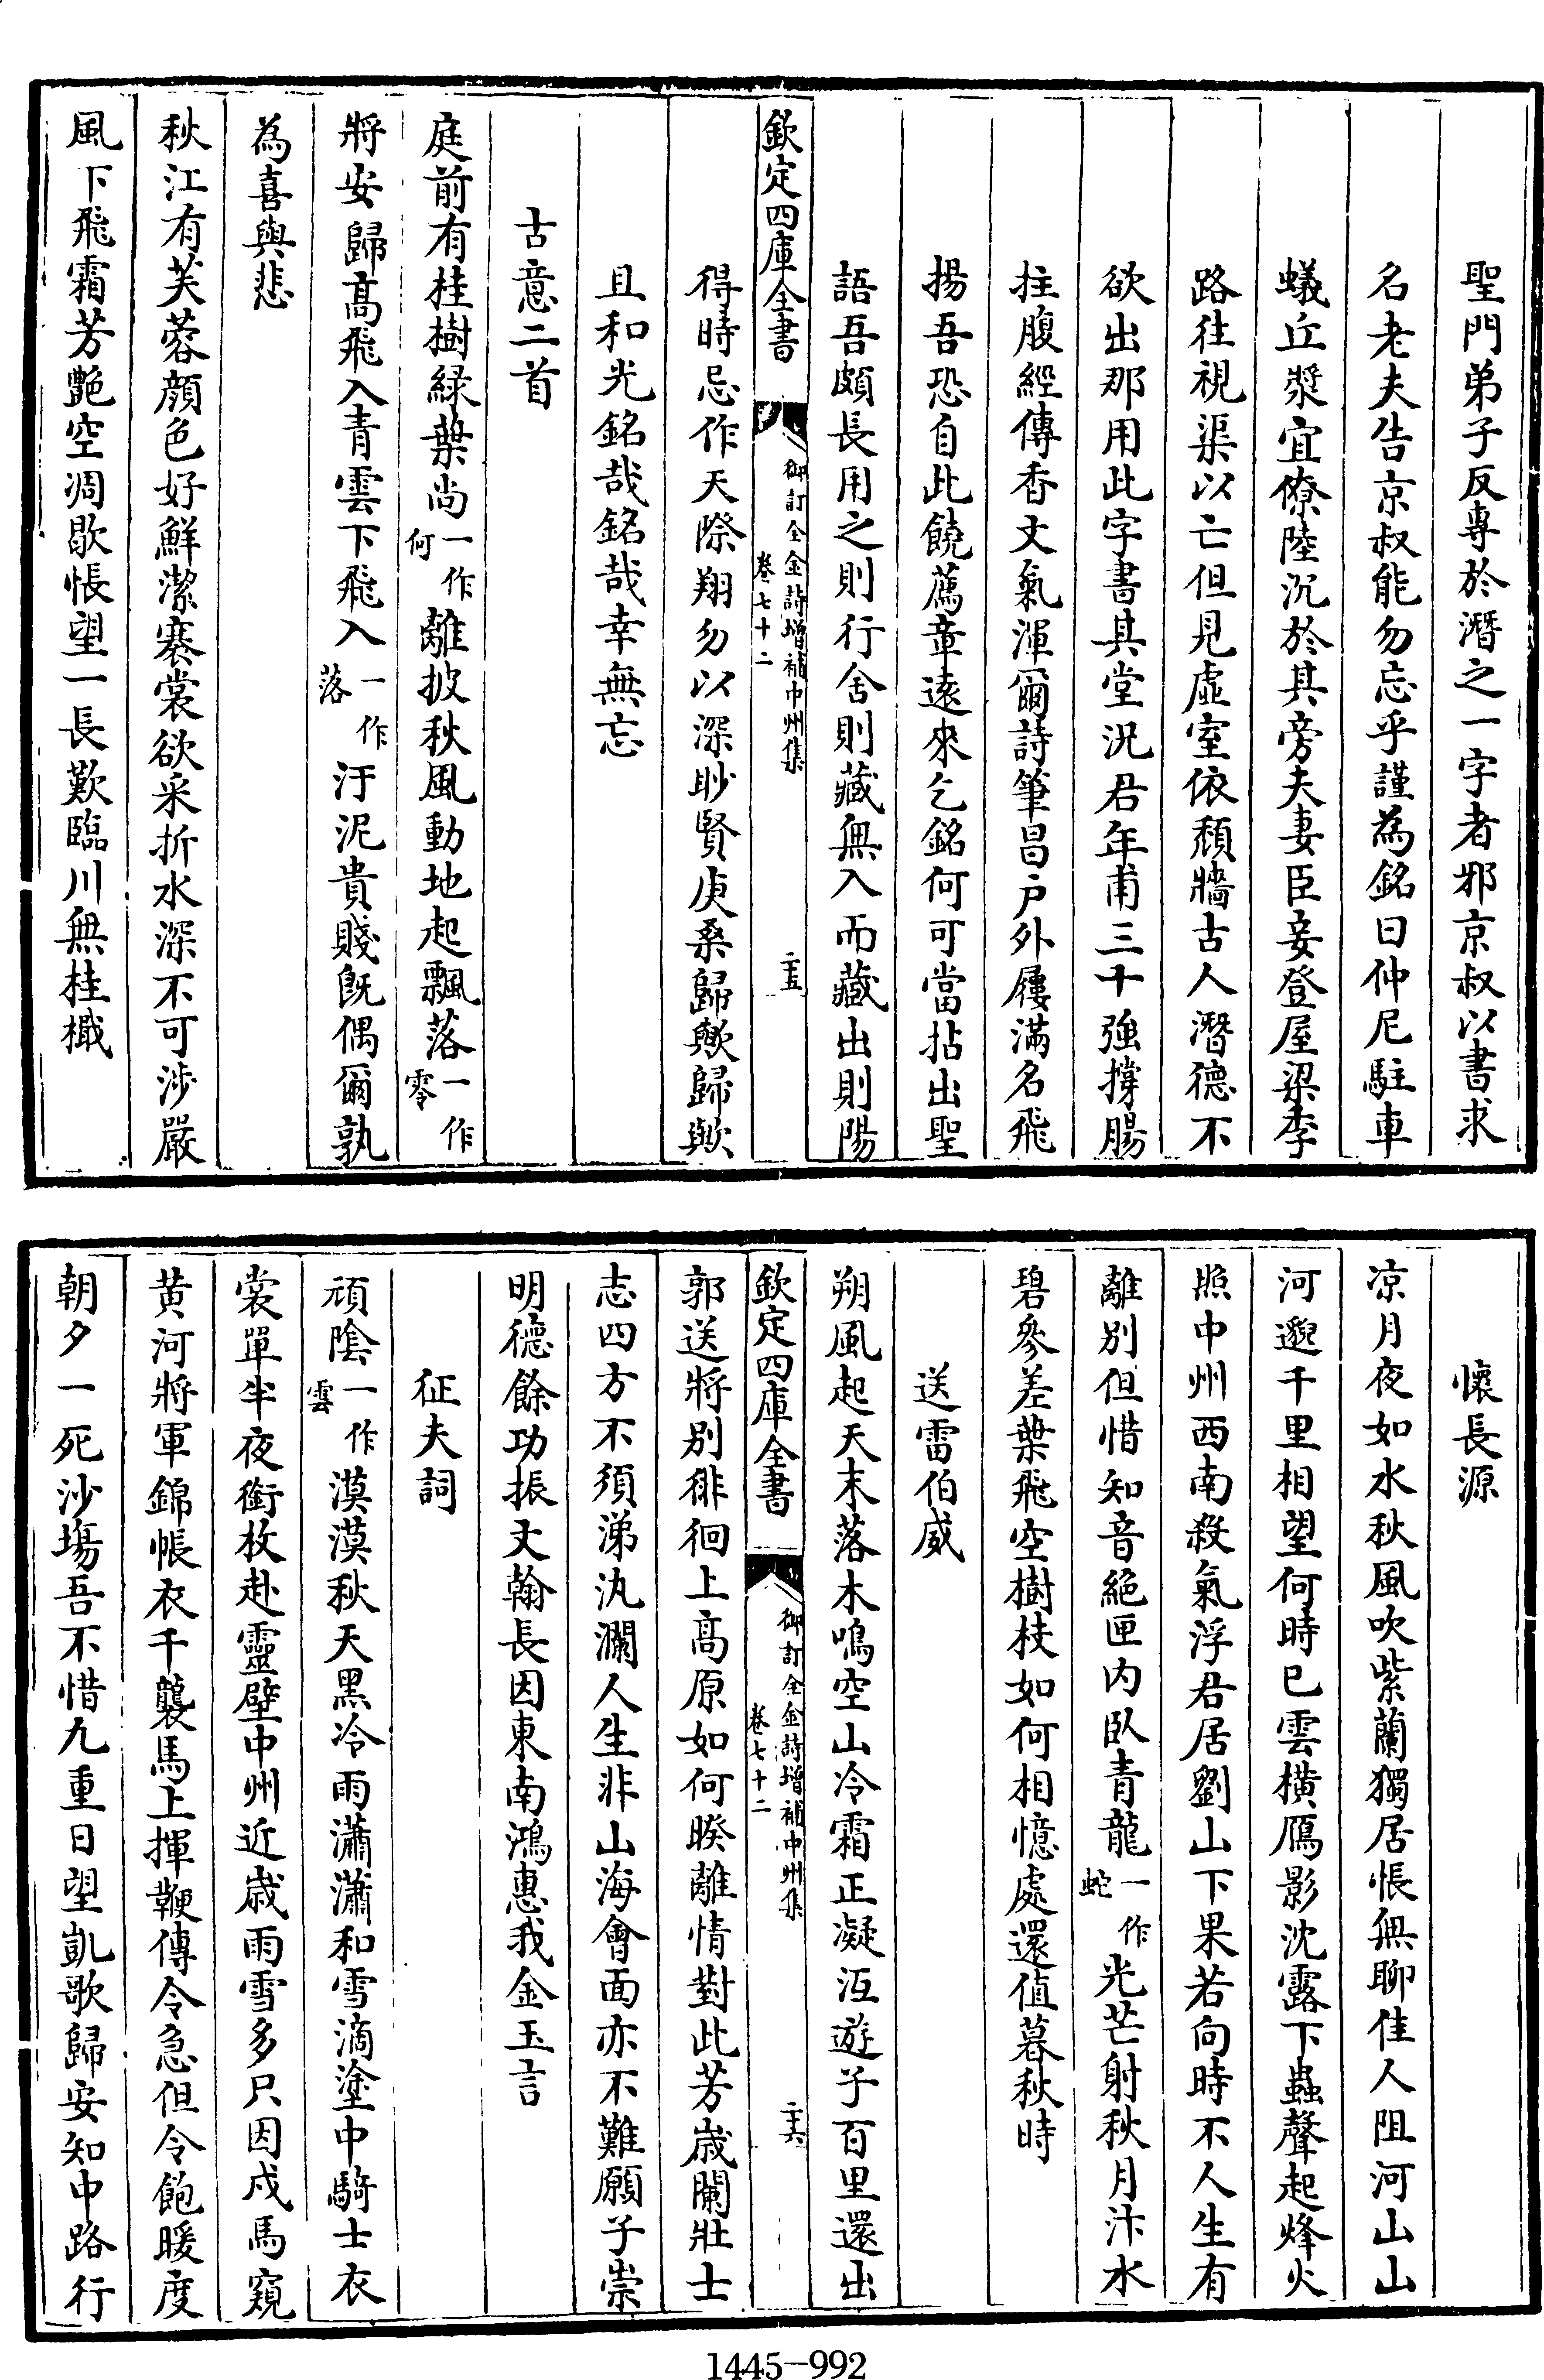 聖門弟子反專於潛之一字者邪京叔以書求
名老夫告京叔能勿忘乎謹為銘曰仲尼駐車
蟻丘漿宜僚陸沉於其旁夫妻臣妾登屋梁季
路往視渠以亡但見虛室依頹牆古人潛德不
欲出那用此字書其堂況君年甫三十強撐腸
拄腹經傳香文氣渾爾詩筆昌户外屨滿名飛
揚吾恐自此饒薦章遠來乞銘何可當拈出聖
語吾頗長用之則行舍則藏無入而藏出則陽
欽定四庫全書
御訂全金詩增補中州集
卷七十二
二十五
得時忌作天際翔勿以深眇賢庚桑歸歟歸歟
且和光銘哉銘哉幸無忘
古意二首
庭前有桂樹緑葉尚一作何離披秋風動地起飄落一作零
將安歸高飛入青雲下飛入一作落汙泥貴賤既偶爾孰
為喜與悲
秋江有芙蓉顔色好鮮潔褰裳欲采折水深不可涉嚴
風下飛霜芳艶空凋歇悵望一長歎臨川無桂檝
懷長源
凉月夜如水秋風吹紫蘭獨居悵無聊佳人阻河山山
河邈千里相望何時已雲橫鴈影沈露下蟲聲起烽火
照中州西南殺氣浮君居劉山下果若向時不人生有
離別但惜知音絶匣内臥青龍一作蛇光芒射秋月汴水
碧參差葉飛空樹枝如何相憶處還值暮秋時
送雷伯威
朔風起天末落木鳴空山冷霜正凝沍遊子百里還出
欽定四庫全書
御訂全金詩增補中州集
卷七十二
二十六
郭送將别徘徊上高原如何暌離情對此芳嵗闌壯士
志四方不須涕汍瀾人生非山海會面亦不難願子崇
明德餘功振文翰長因東南鴻惠我金玉言
征夫詞
頑陰一作雲漠漠秋天黑冷雨瀟瀟和雪滴塗中騎士衣
裳單半夜銜枚赴靈壁中州近嵗雨雪多只因戍馬窺
黄河將軍錦帳衣千襲馬上揮鞭傳令急但令飽暖度
朝夕一死沙場吾不惜九重日望凱歌歸安知中路行
1445-992